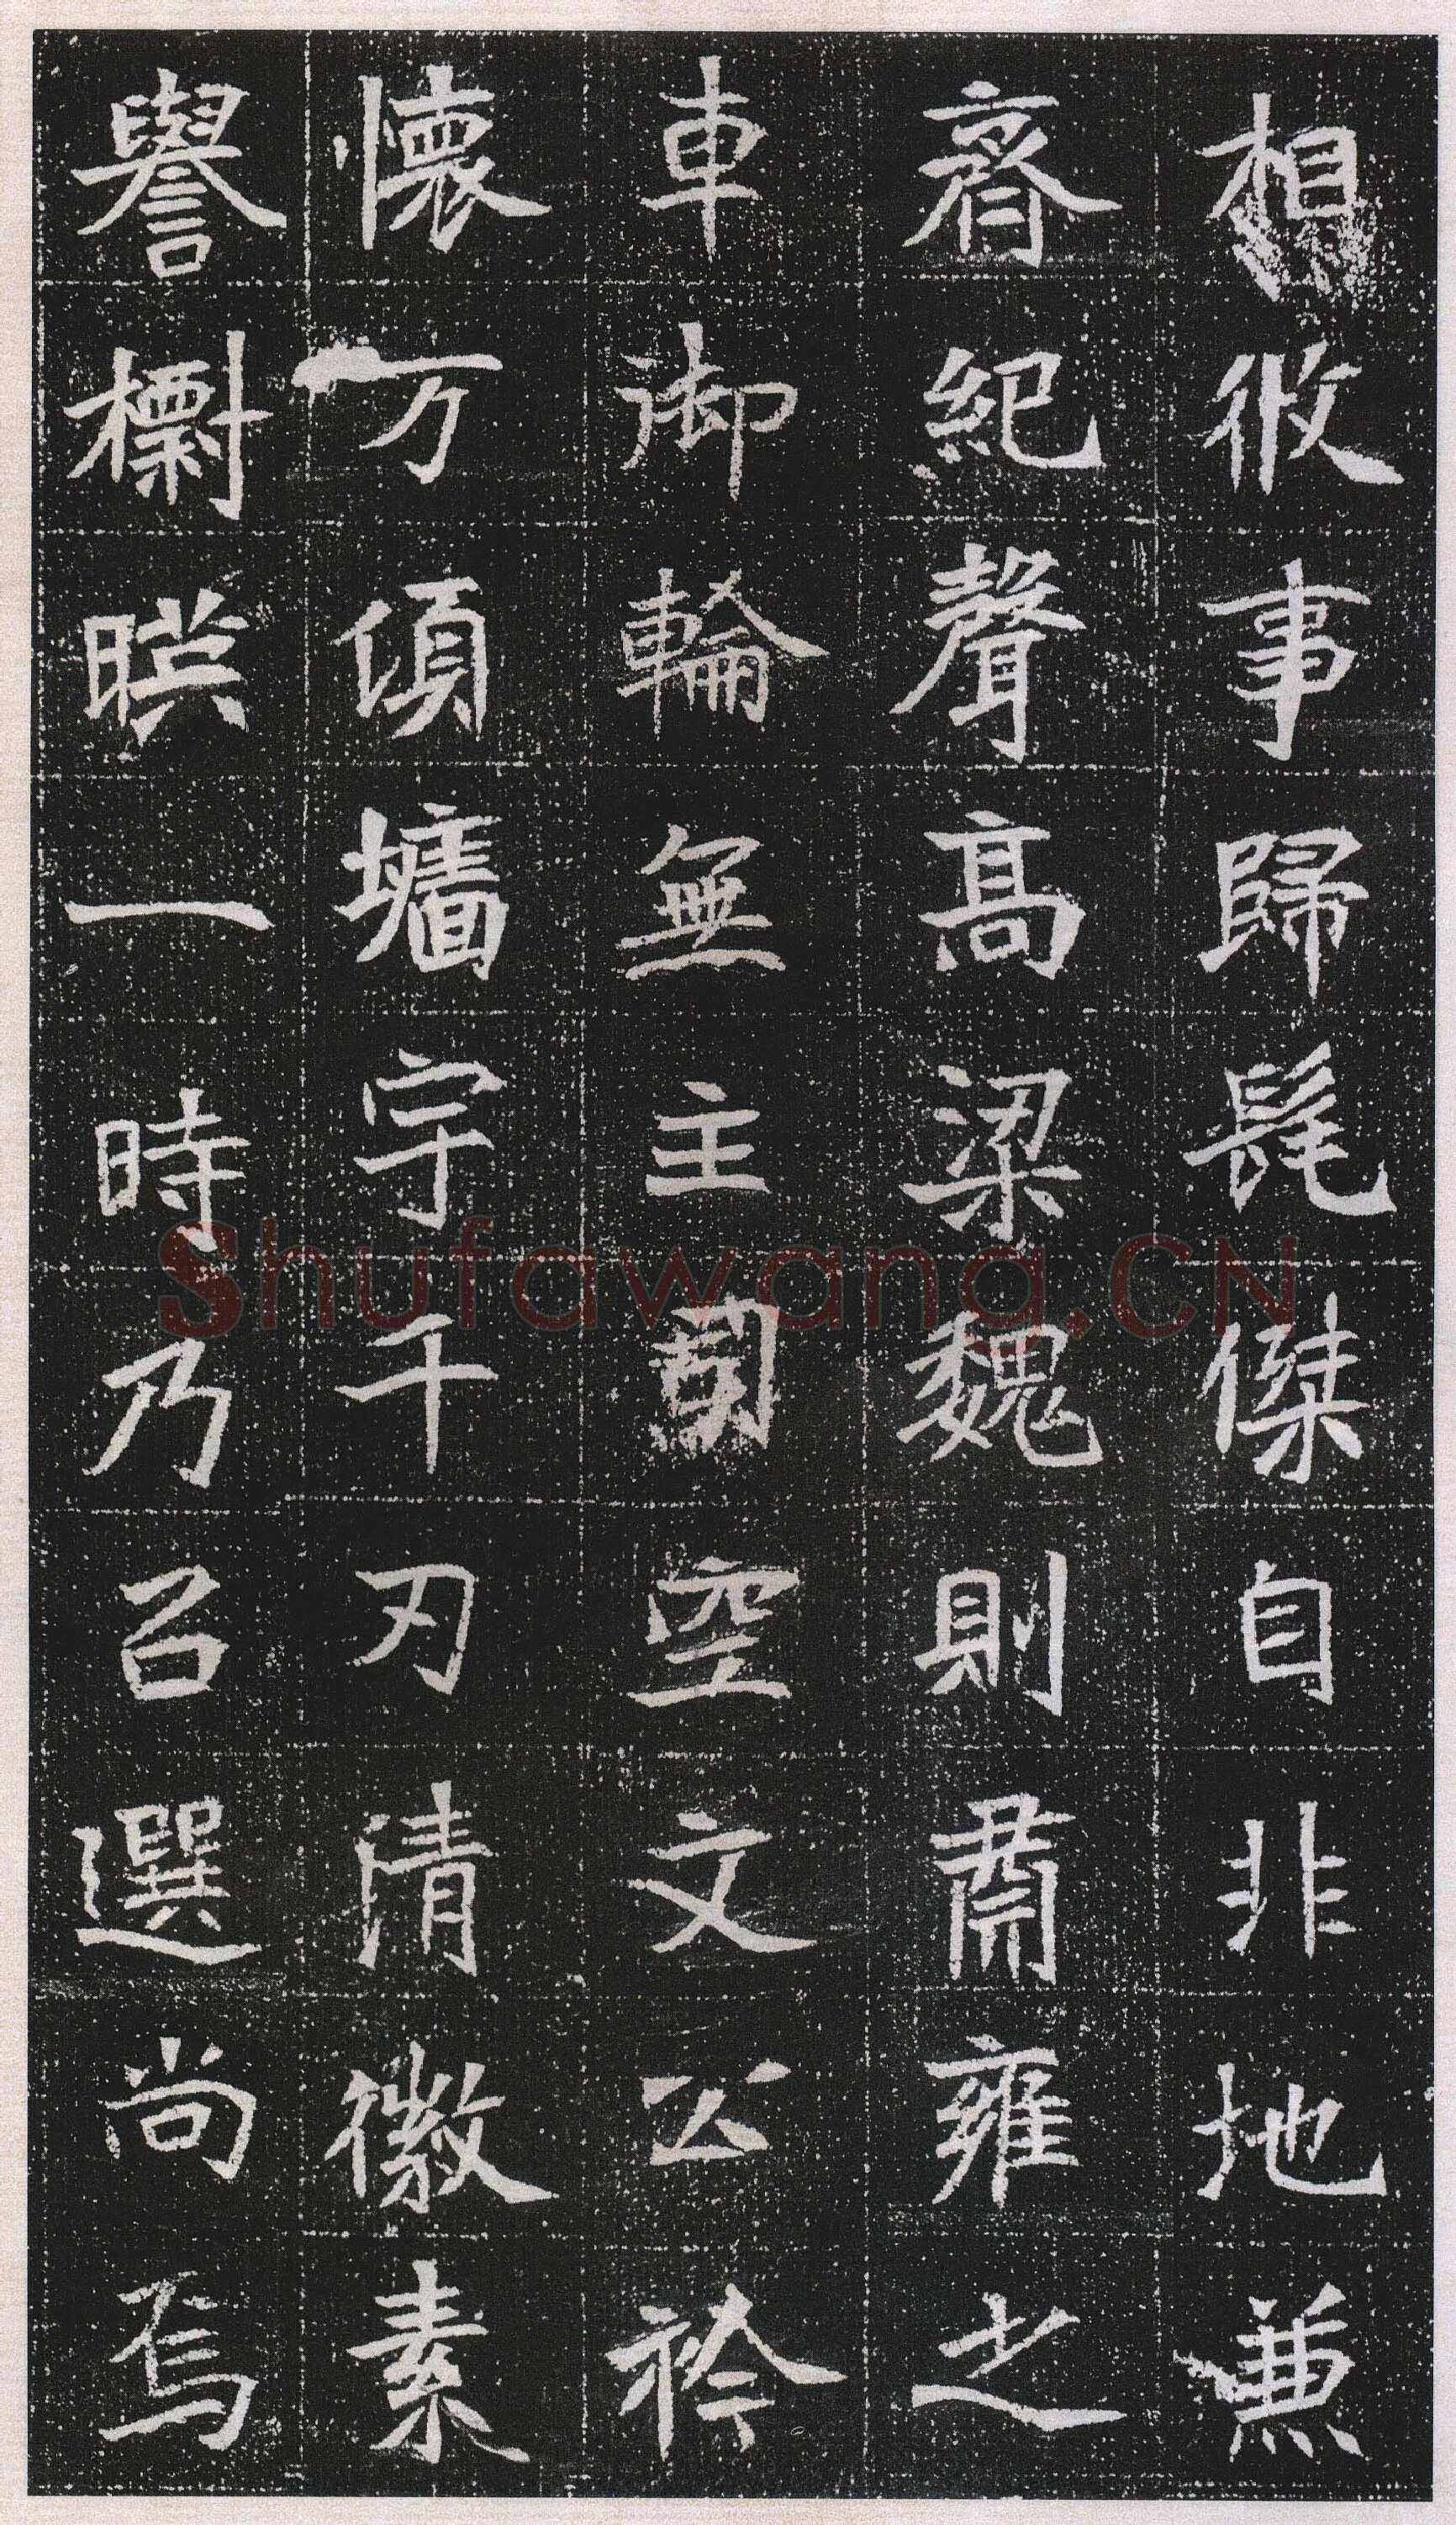 相攸事歸髦傑自非地兼
齊紀聲高梁魏則肅雍之
車御輪無主司空文公衿
懷万頃墻宇千刃清徽素
譽標暎一時乃召選尚焉
Shufawang.CN